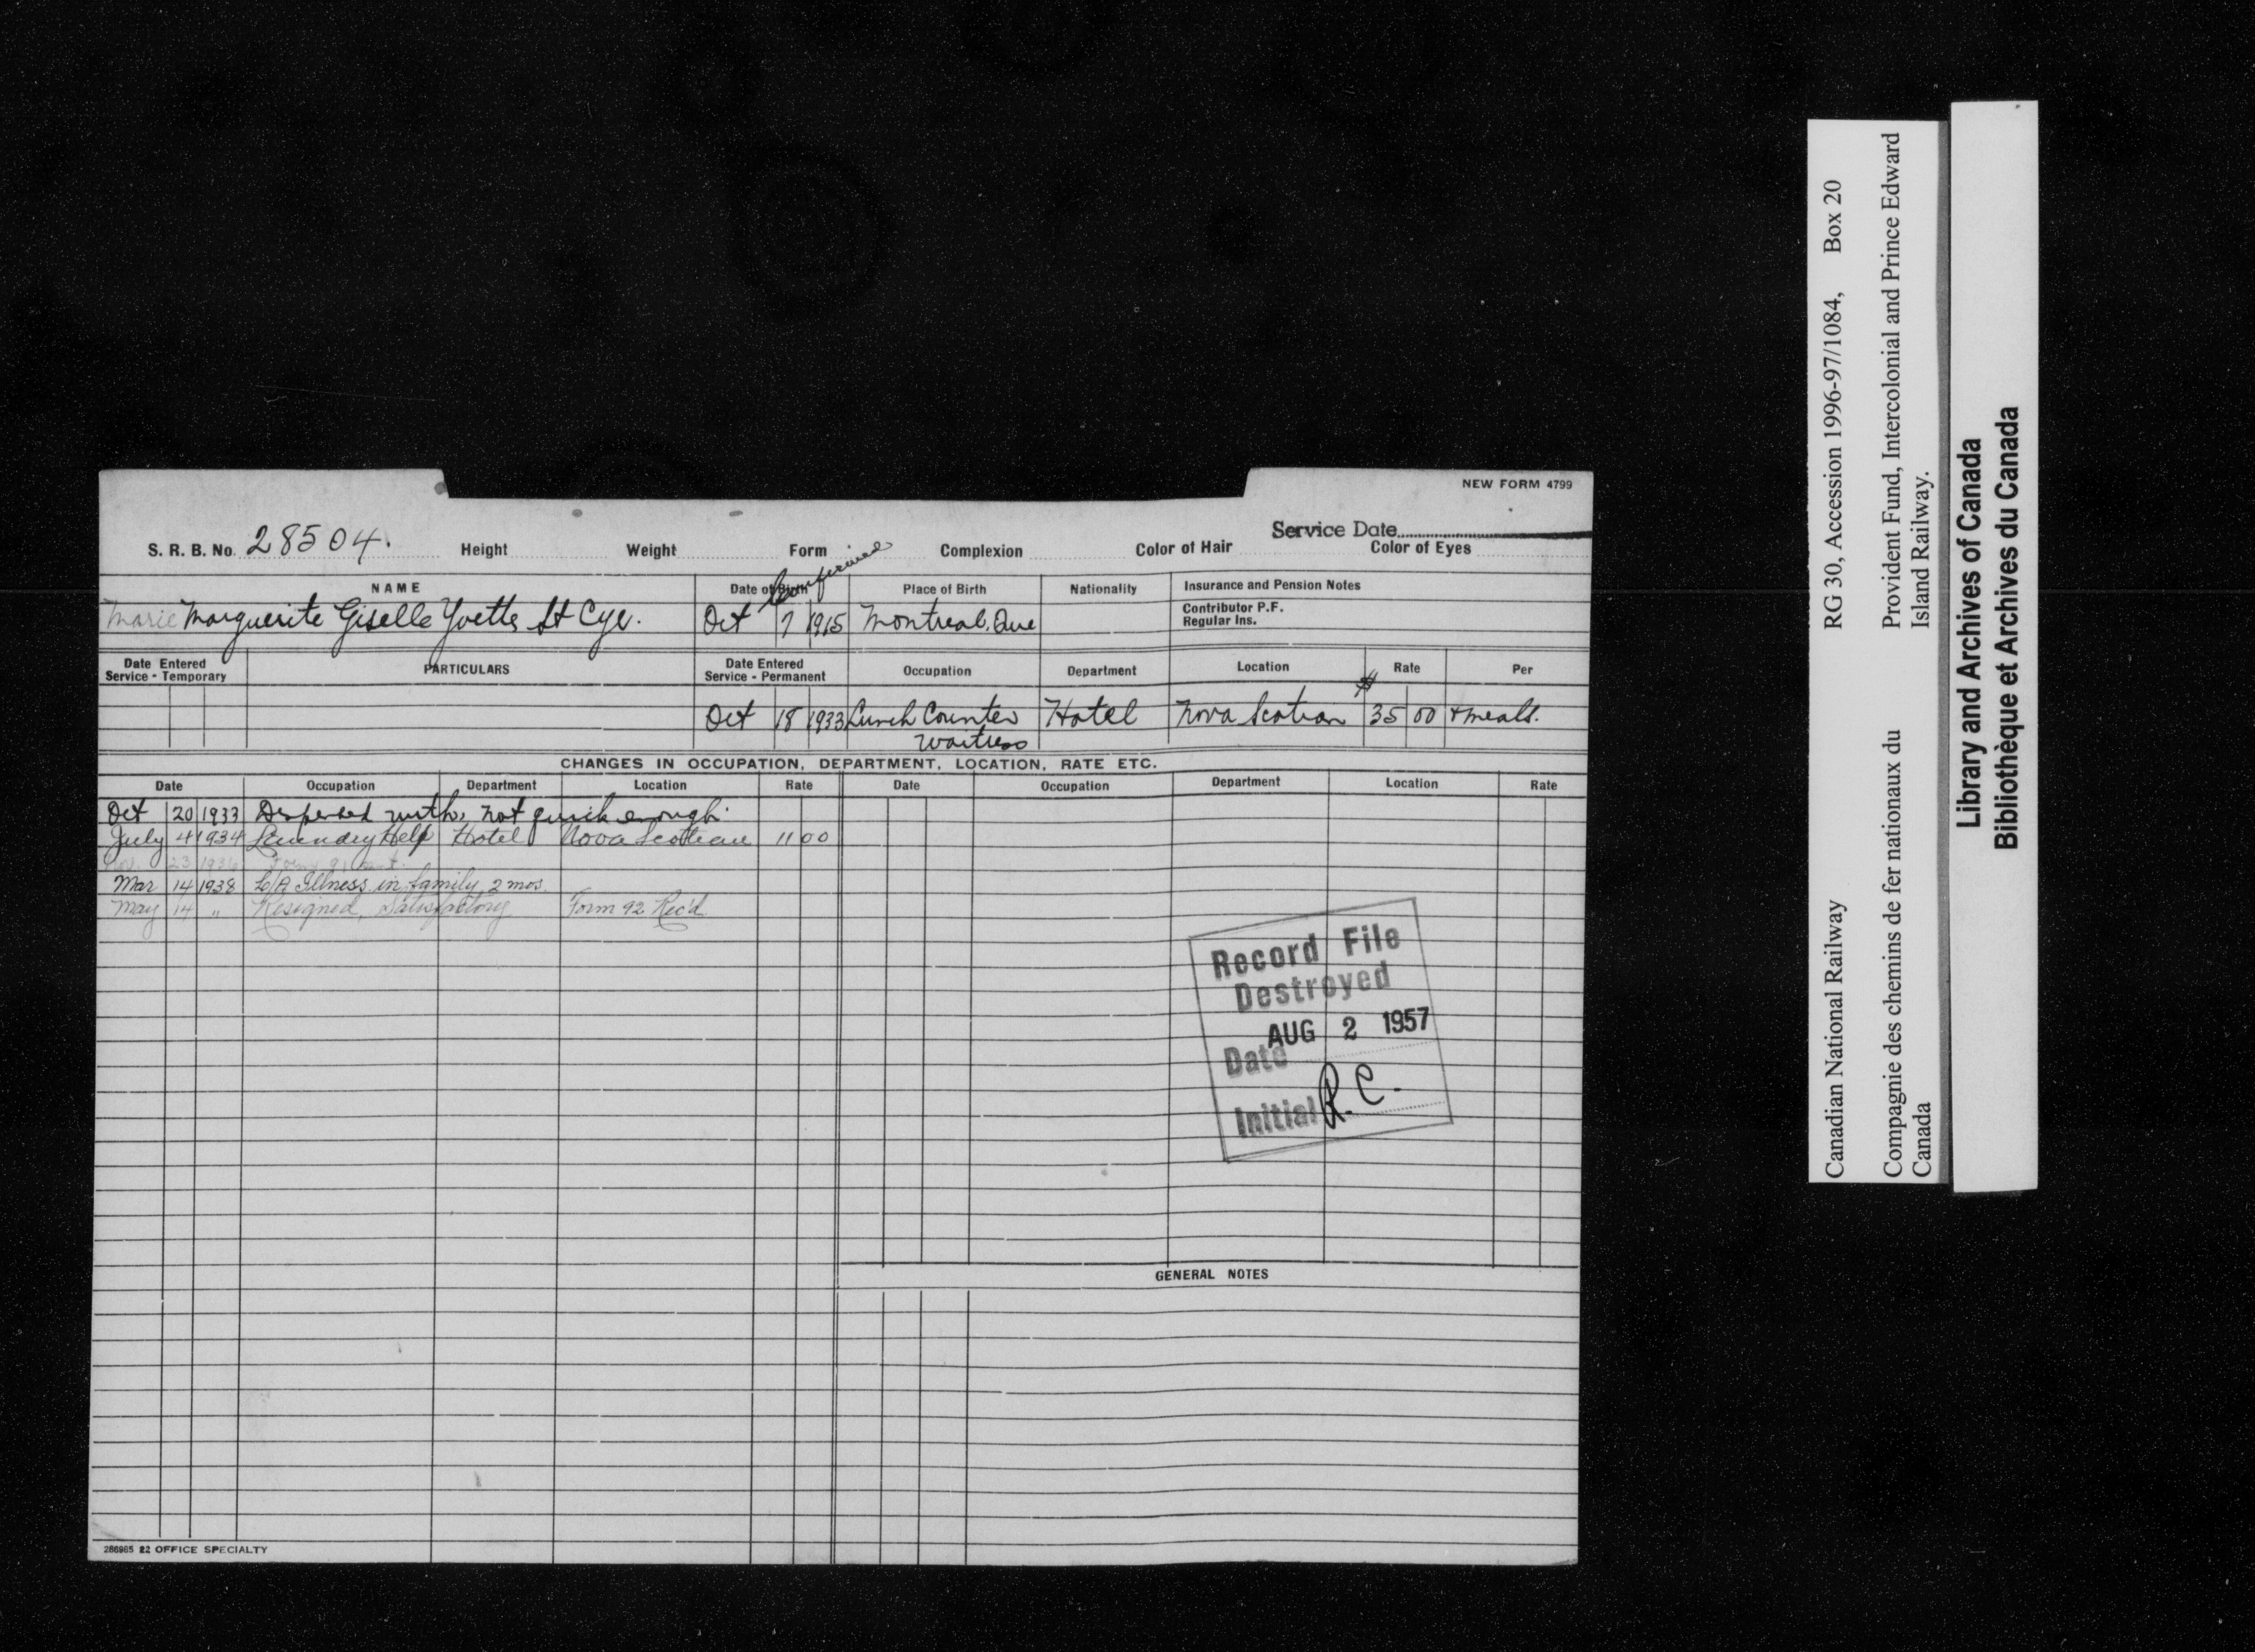 NEW FORM 4799
Service Date
S. R. B. No. 28504. Height Weight Form Complexion Color of Hair Color of Eyes
Confirmed
NAME Date of Birth Place of Birth Nationality Insurance and Pension Notes
Marie Marguerite Giselle Yvette St Cyr. Oct 7 1915 Montreal. Que Contributor P.F.
Regular Ins.
Date Entered Service - Temporary PARTICULARS Date Entered Service - Permanent Occupation Department Location Rate Per
Oct 18 1933 Lunch Counter Hotel Nova Scotian $ 35 00 + meals.
Waitress
CHANGES IN OCCUPATION, DEPARTMENT, LOCATION, RATE ETC.
Date Occupation Department Location Rate Date Occupation Department Location Rate
Oct 20 1933 Dispensed with, not quick enough.
July 4 1934 Laundry Help Hotel Nova Scotian 11 00
Nov. 23 1936 Form 91
Mar 14 1938 L/A Illness in family 2 mos.
May 14 " Resigned, Satisfactory Form 92 Rec'd
Record File
Destroyed
AUG 2 1957
Date
Initial R.C.
GENERAL NOTES
286985 22 OFFICE SPECIALTY
Canadian National Railway RG 30, Accession 1996-97/1084, Box 20
Compagnie des chemins de fer nationaux du Provident Fund, Intercolonial and Prince Edward
Canada Island Railway.
Library and Archives of Canada
Bibliothèque et Archives du Canada